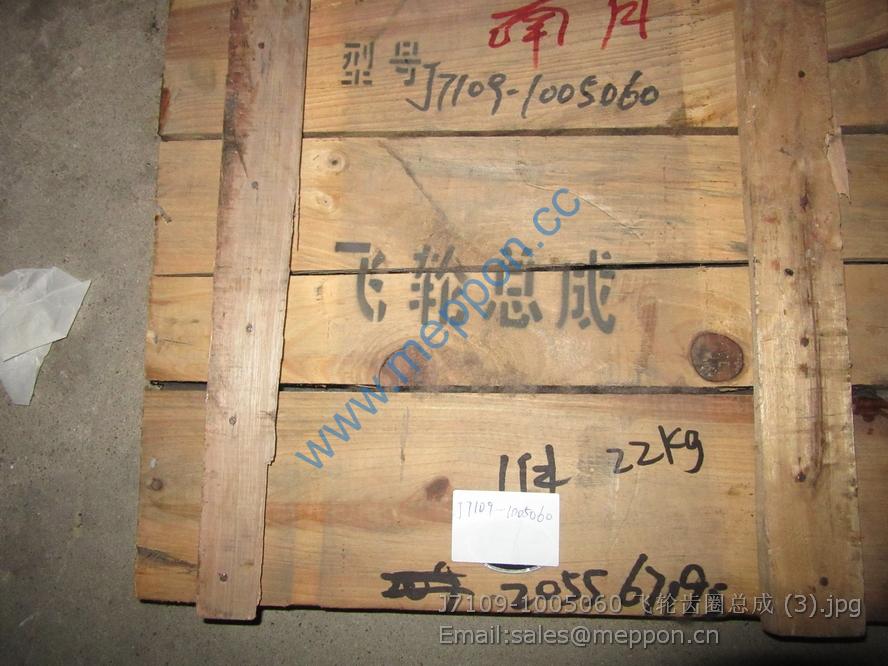 型号 J7109-1005060
飞轮总成
www.meppon.cc
22kg
J7109-1005060
J7109-1005060 飞轮齿圈总成 (3).jpg
Email:sales@meppon.cn